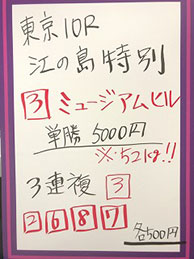 東京10R
江の島特別
3 ミュージアムヒル
単勝 5000円
※52kg!!
3連複 3
2 6 8 7
各500円